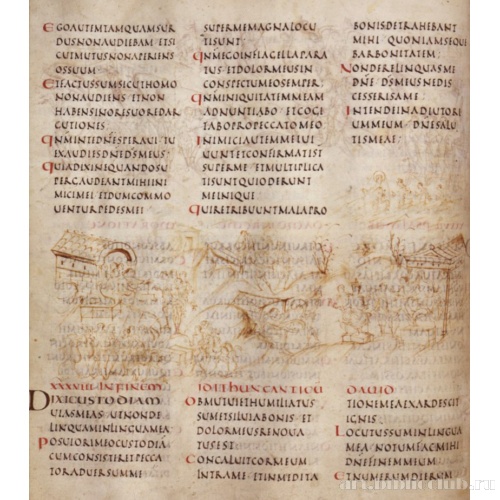 EGOAUTEMTAMQUAMSUR
DUSNONAUDIEBAM ETSI
CUTMUTUSNONAPERIENS
OSSUUM
ETFACTUSSUMSICUTHOMO
NONAUDIENS ETNON
HABENSINORESUOREDAR
GUTIONES
QNMINTEDNESPERAUI TU
EXAUDIESDNEDSMEUS
QUIADIXINEQUANDOSU
PERGAUDEANTMIHIINI
MICIMEI ETDUMCOMMO
UENTURPEDESMEI
SUPERMEMAGNALOCU
TISUNT
QNMEGOINFLAGELLAPARA
TUS ETDOLORMEUSIN
CONSPECTUMEOSEMPER
QNMINIQUITATEMMEAM
ADNUNTIABO ETCOGI
TABOPROPECCATOMEO
INIMICIAUTEMMEIUI
UUNTETCONFIRMATIST
SUPERME ETMULTIPLICA
TISUNTQUIODERUNT
MEINIQUE
QUIRETRIBUUNTMALAPRO
BONISDETRAHEBANT
MIHI QUONIAMSEQUE
BARBONITATEM
NONDERELINQUASME
DNE DSMEUSNEDIS
CESSERISAME
INTENDEINADIUTORI
UMMEUM DNESALU
TISMEAE
XXXVIII INFINEM
DIXICUSTODIAM
UIASMEAS UTNONDE
LINQUAMINLINGUAMEA
POSUIORIMEOCUSTODIA
CUMCONSISTERETPECCA
TORADUERSUMME
IDITHUNCANTICU
OBMUTUIETHUMILIATUS
SUMETSILUIABONIS ET
DOLORMEUSRENOUA
TUSEST
CONCALUITCORMEUM
INTRAME ETINMEDITA
DAUID
TIONEMEAEXARDESCIT
IGNIS
LOCUTUSSUMINLINGUA
MEA NOTUMFACMIHI
DNEFINEMMEUM
ETNUMERUMDIERUM